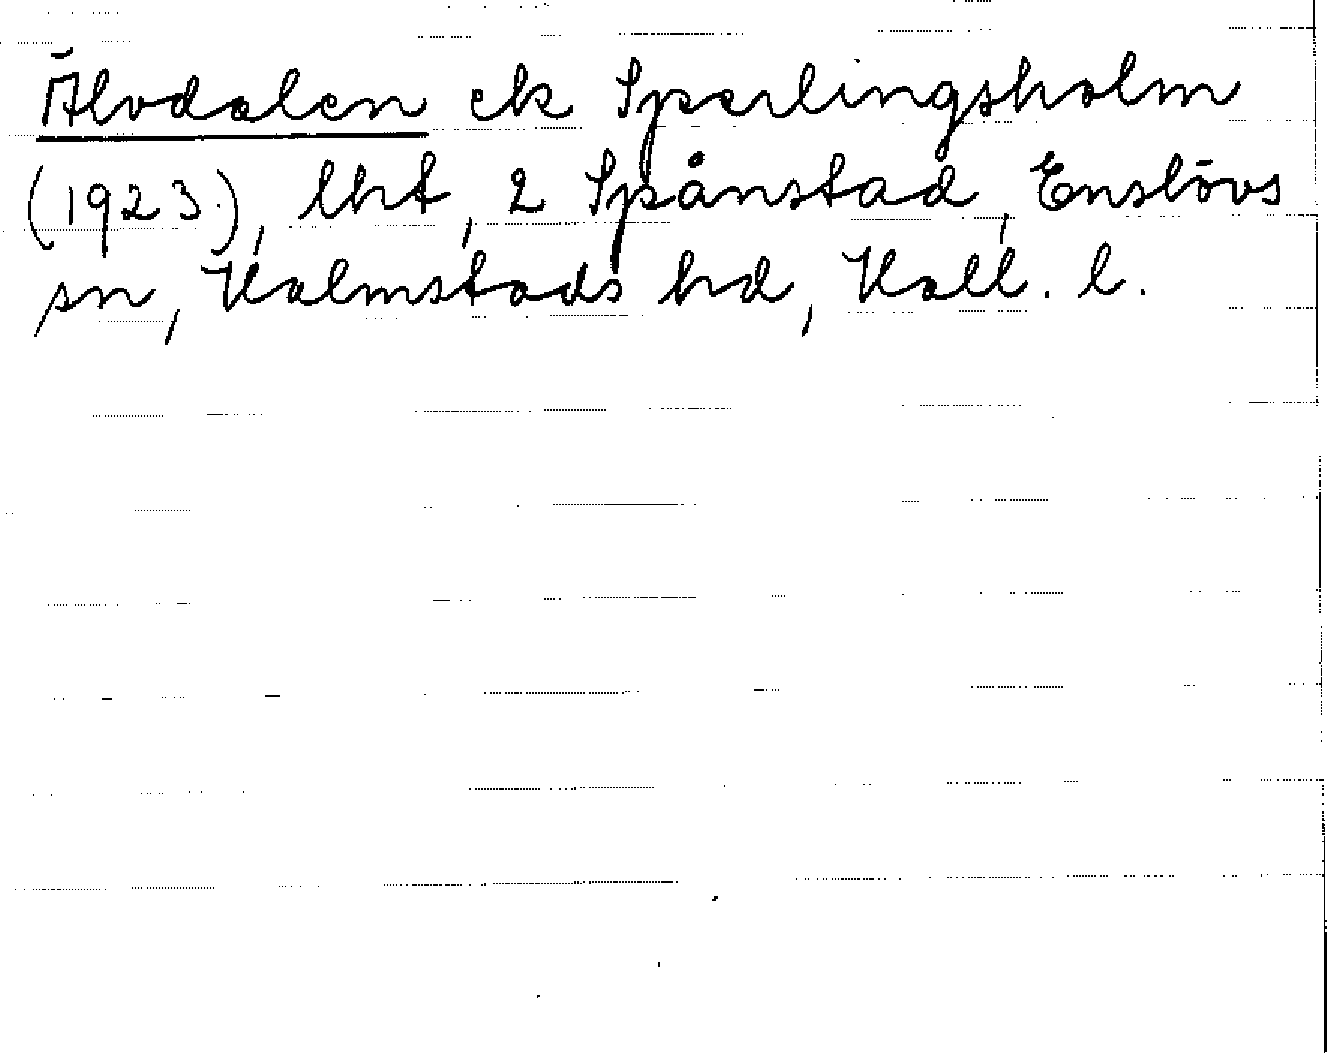 Älvdalen ek Sperlingsholm
(1923.), lht, 2 Spånstad, Enslövs
sn, Halmstads hd, Hall. l.